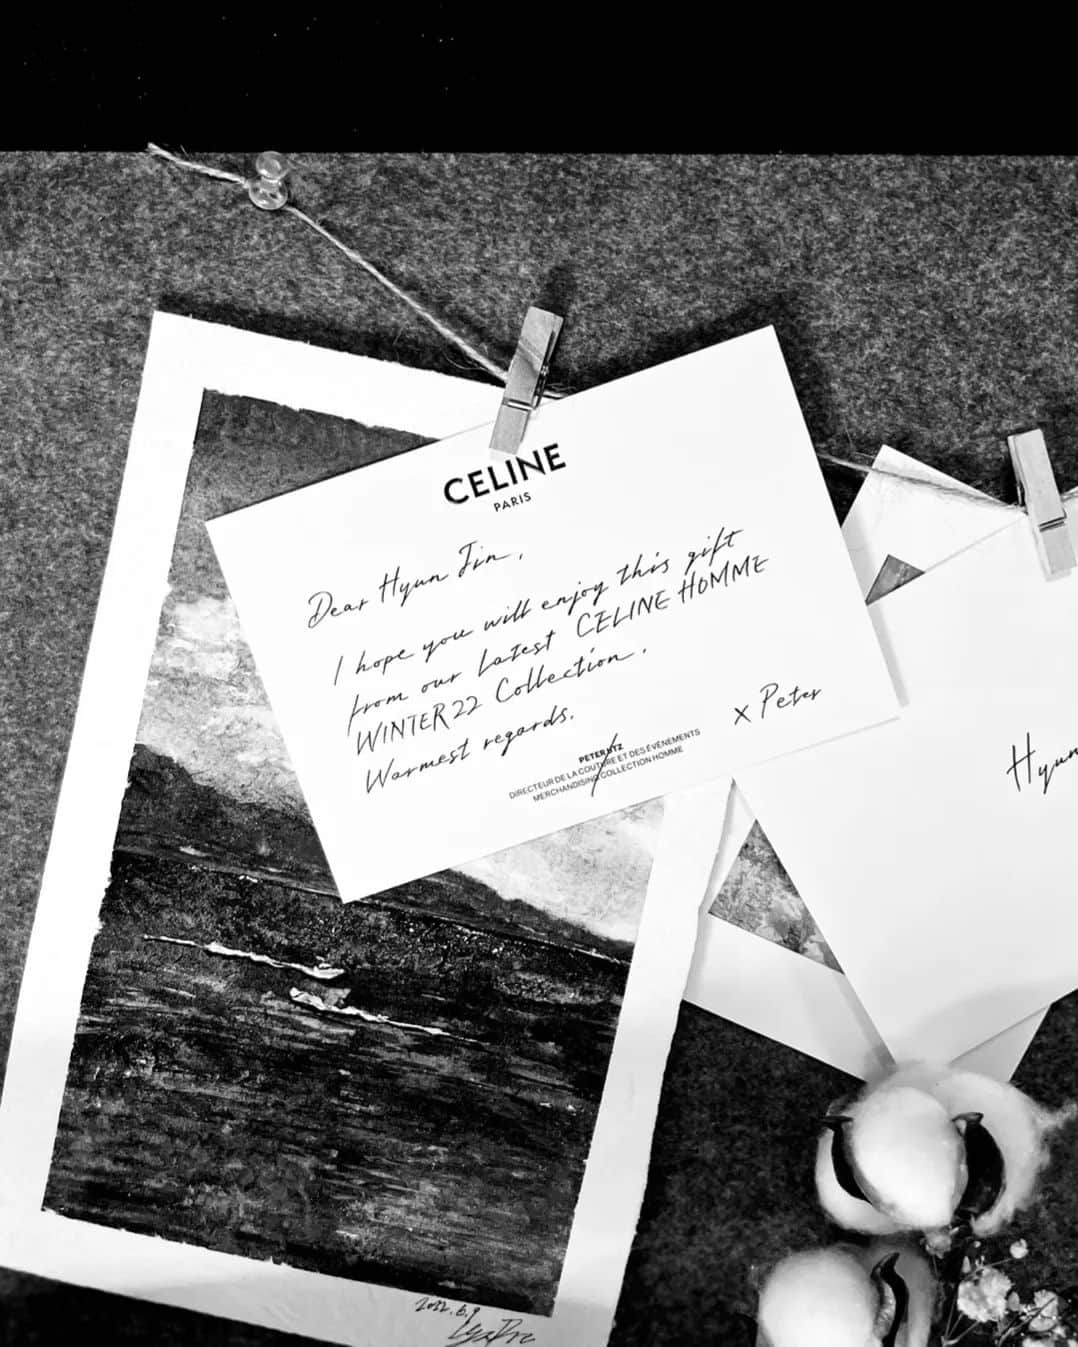 CELINE
PARIS
Dear Hyun Jin,
I hope you will enjoy this gift
from our latest CELINE HOMME
WINTER 22 Collection.
Warmest regards.
x Peter
PETER UTZ
DIRECTEUR DE LA COUTURE ET DES ÉVÉNEMENTS
MERCHANDISING COLLECTION HOMME
Hyun
2022.6.9